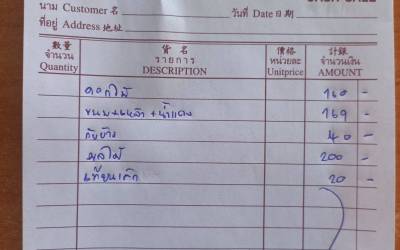 CASH SALE
นาม Customer 名
วันที่ Date 日期
ที่อยู่ Address 地址
數量 貨名 價格 計銀
จำนวน รายการ หน่วยละ จำนวนเงิน
Quantity DESCRIPTION Unitprice AMOUNT
ดอกไม้ 160 -
ขนม+เหล้า+น้ำแดง 169 -
กับข้าว 40 -
ผลไม้ 200 -
20 -